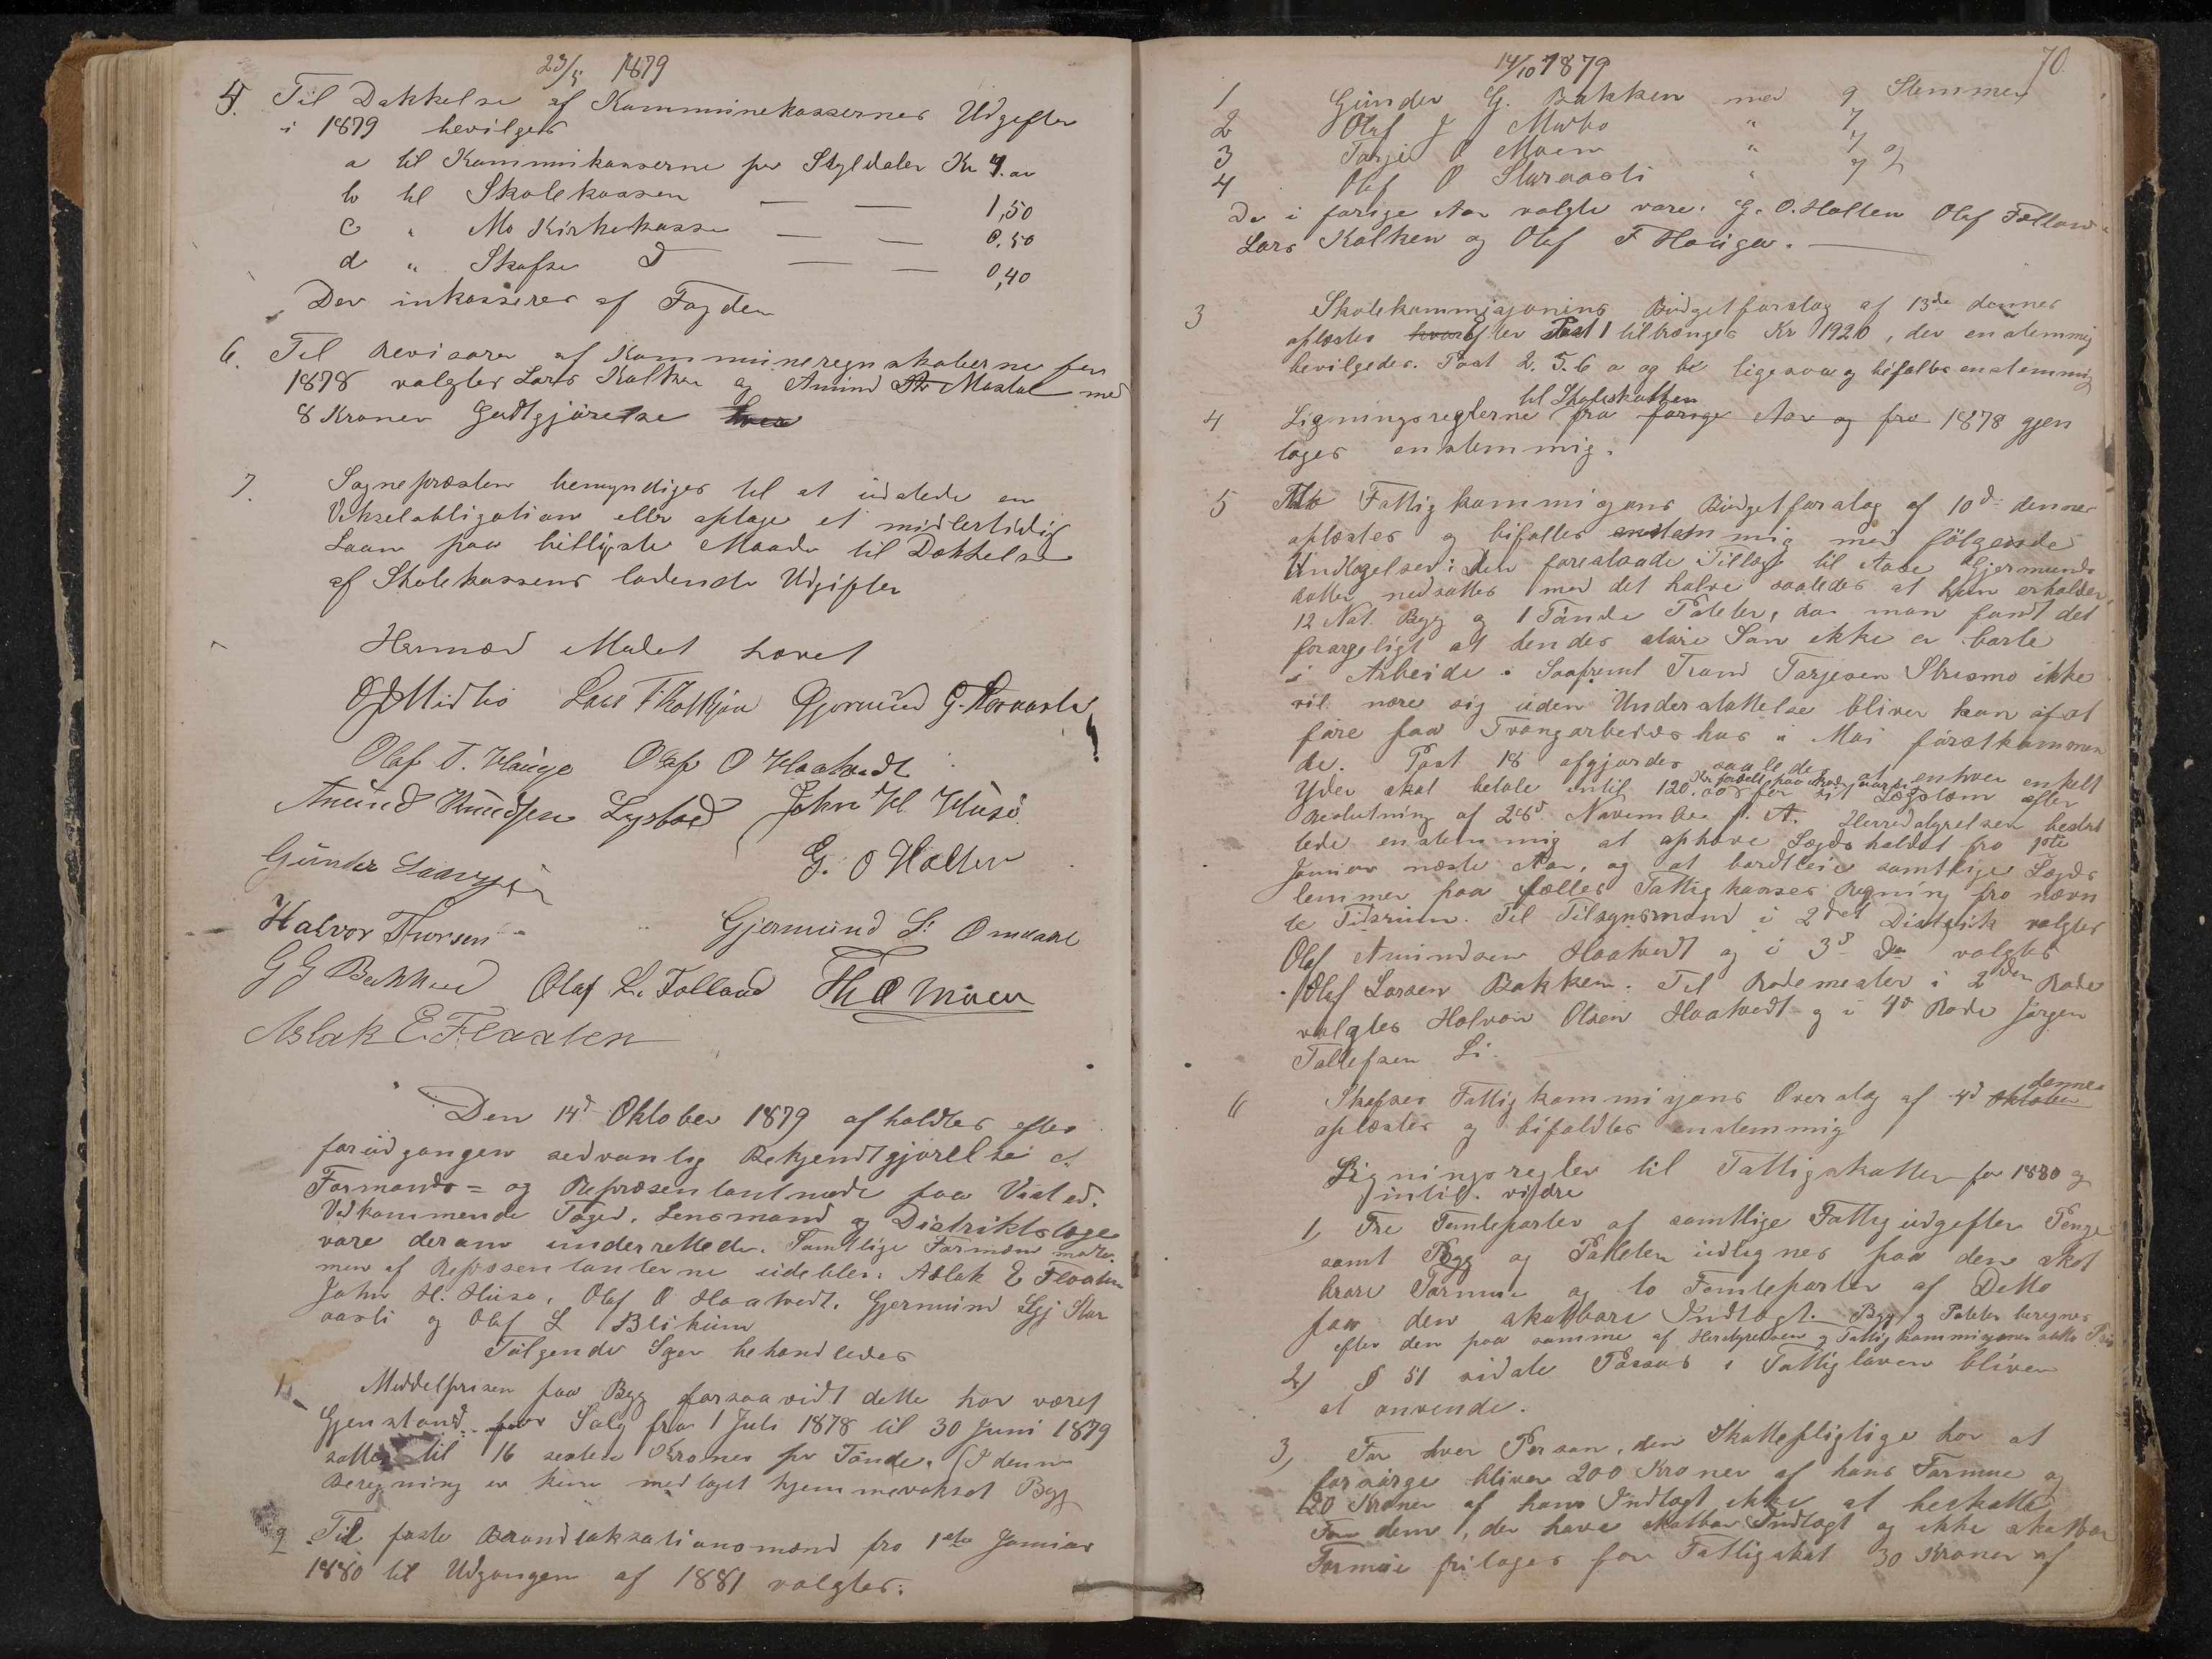 23/5 1879
5. Til Dækkelse af Kommunekassernes Udgifter
i 1879 bevilges
a til Kommunkasserne pr Skyldaler Kr 4.00
b til Skolekassen — — 1,50
c " Mo Kirkekasse — — 0,50
d " Skafse D — — 0,40
Der inkasseres af Fogden
6. Til Revisorer af Kommuneregnskaberne for
1878 valgtes Lars Kolkin og Amund Mostøl med
8 Kroner Godtgjörelse hver
7. Sognepræsten bemyndiges til at udstede en
Vekselobligation eller optage et midlertidig
Laan paa billigste Maade til Dækkelse
af Skolekassens ladende Udgifter
Hermed Mødet hævet
O J Midbö Lars T Kolkjön Gjermund G.
Olaf T. Hauge Olaf O Haatvedt
Aamund Knudsen Lystad John H. Husö
Gunder G. O Holten
Halvor Thorsen Gjermund S. Omdahl
G G Bakken Olaf L. Folland Th O Moen
Aslak E. Flaaten
Den 14d Oktober 1879 afholdtes efter
forudgangen sedvanlig Bekjendtgjörelse et
Formands= og Repræsentantmöde paa Vistad.
Vedkommende Foged, Lensmand og Distriktslæge
vare derom underrettede. Samtlige Formænd mödte
men af Repræsentanterne udeblev: Aslak E Flaaten
John H. Huso, Olaf O Haatvedt, Gjermund Gj Stor
aasli og Olaf L Blikum
Fölgende Sager behandledes
1. Middelprisen paa Byg forsaavidt dette har været
Gjenstand for Salg fra 1 Juli 1878 til 30 Juni 1879
sattes til 16 sexten Kroner pr Tönde. (I denne
Beregning er kun medtaget hjemmevokset Byg
2 Til faste Brandtaksationsmænd fra 1ste Januar
1880 til Udgangen af 1881 valgtes:
14/10 1879 70.
1 Gunder G. Bakken med 9 Stemmer
2 Olaf J Midbo " 7
3 Tarjei O Moen " 7
4 Olaf O Storaasli " 7
De i forige Aar valgte vare: G. O. Holten Olaf Folland
Lars Kolken og Olaf T Hauga. —
3 Skolekommisjonens Budgetforslag af 13de dennes
oplæstes hvorefter Post 1 tiltrænges Kr 1920, der enstemmig
bevilgedes. Post 2. 5. 6 a og b ligesaa og bifaldes enstemmig
til Skoleskatten
4 Ligningsreglerne fra forige Aar og fra 1878 gjen
tages enstemmig.
5 Mo Fattigkommisjons Budgetforslag af 10d dennes
oplæstes og bifaldes enstemmig med fölgende
Undtagelser: Den foreslaade Tillæg til Aase Gjermunds
datter nedsattes med det halve saaledes at hun erholder
12 Nat. Byg og 1 Tönde Poteter, da man fandt det
forargeligt at hendes störe Sön ikke er borte
i Arbeide. Saafremt Trond Tarjesen Strismo ikke
vil nære sig uden Understöttelse bliver han at af
före paa Tvangarbeidshus i Mai förstkommen
de. Post 18 afgjordes saaledes at enhver enkelt
Yder skal betale indtil 120.00 for sit Lægslem efter
Beslutning af 28d November f. A. Herredstyrelsen beslut
tede enstemmig at ophæve Lægdsholdet fra 1ste
Januar næste Aar, og at bortleie samtlige Lægds
lemmer paa fælles Fattigkasses Regning fra nævn
te Tidsrum. Til Tilsynsmand i 2det Distrik valgtes
Olaf Amundsen Haatvedt og i 3d Do valgtes
Olaf Larsen Bakken. Til Rodemester i 2den Rode
valgtes Halvor Olsen Haatvedt og i 4d Rode Jörgen
Tollefsen Li.
6 Skafses Fattigkommisjons Overslag af 4d Oktober dennes
oplæstes og bifaldtes enstemmig
Ligningsregler til Fattigskatten for 1880 og
indtil vidre
1, Tre Femteparter af samtlige Fattigudgifter Penge
samt Byg og Poteter udlignes paa den skat
bare Formue og to Femteparter af Detto
paa den skatbare Indtægt. Byg og Poteter beregnes
efter den paa samme af Herdstyrelsen og Fattigkommisjonen satte Pris
2, § 51 sidste Passus i Fattigloven bliver
at anvende.
3, For hver Person, den Skattepligtige har at
forsörge bliver 200 Kroner af hans Formue og
120 Kroner af hans Indtægt ikke at beskatte
For dem, der have skatbar Indtægt og ikke skatbar
Formue fritages for Fattigskat 30 Kroner af